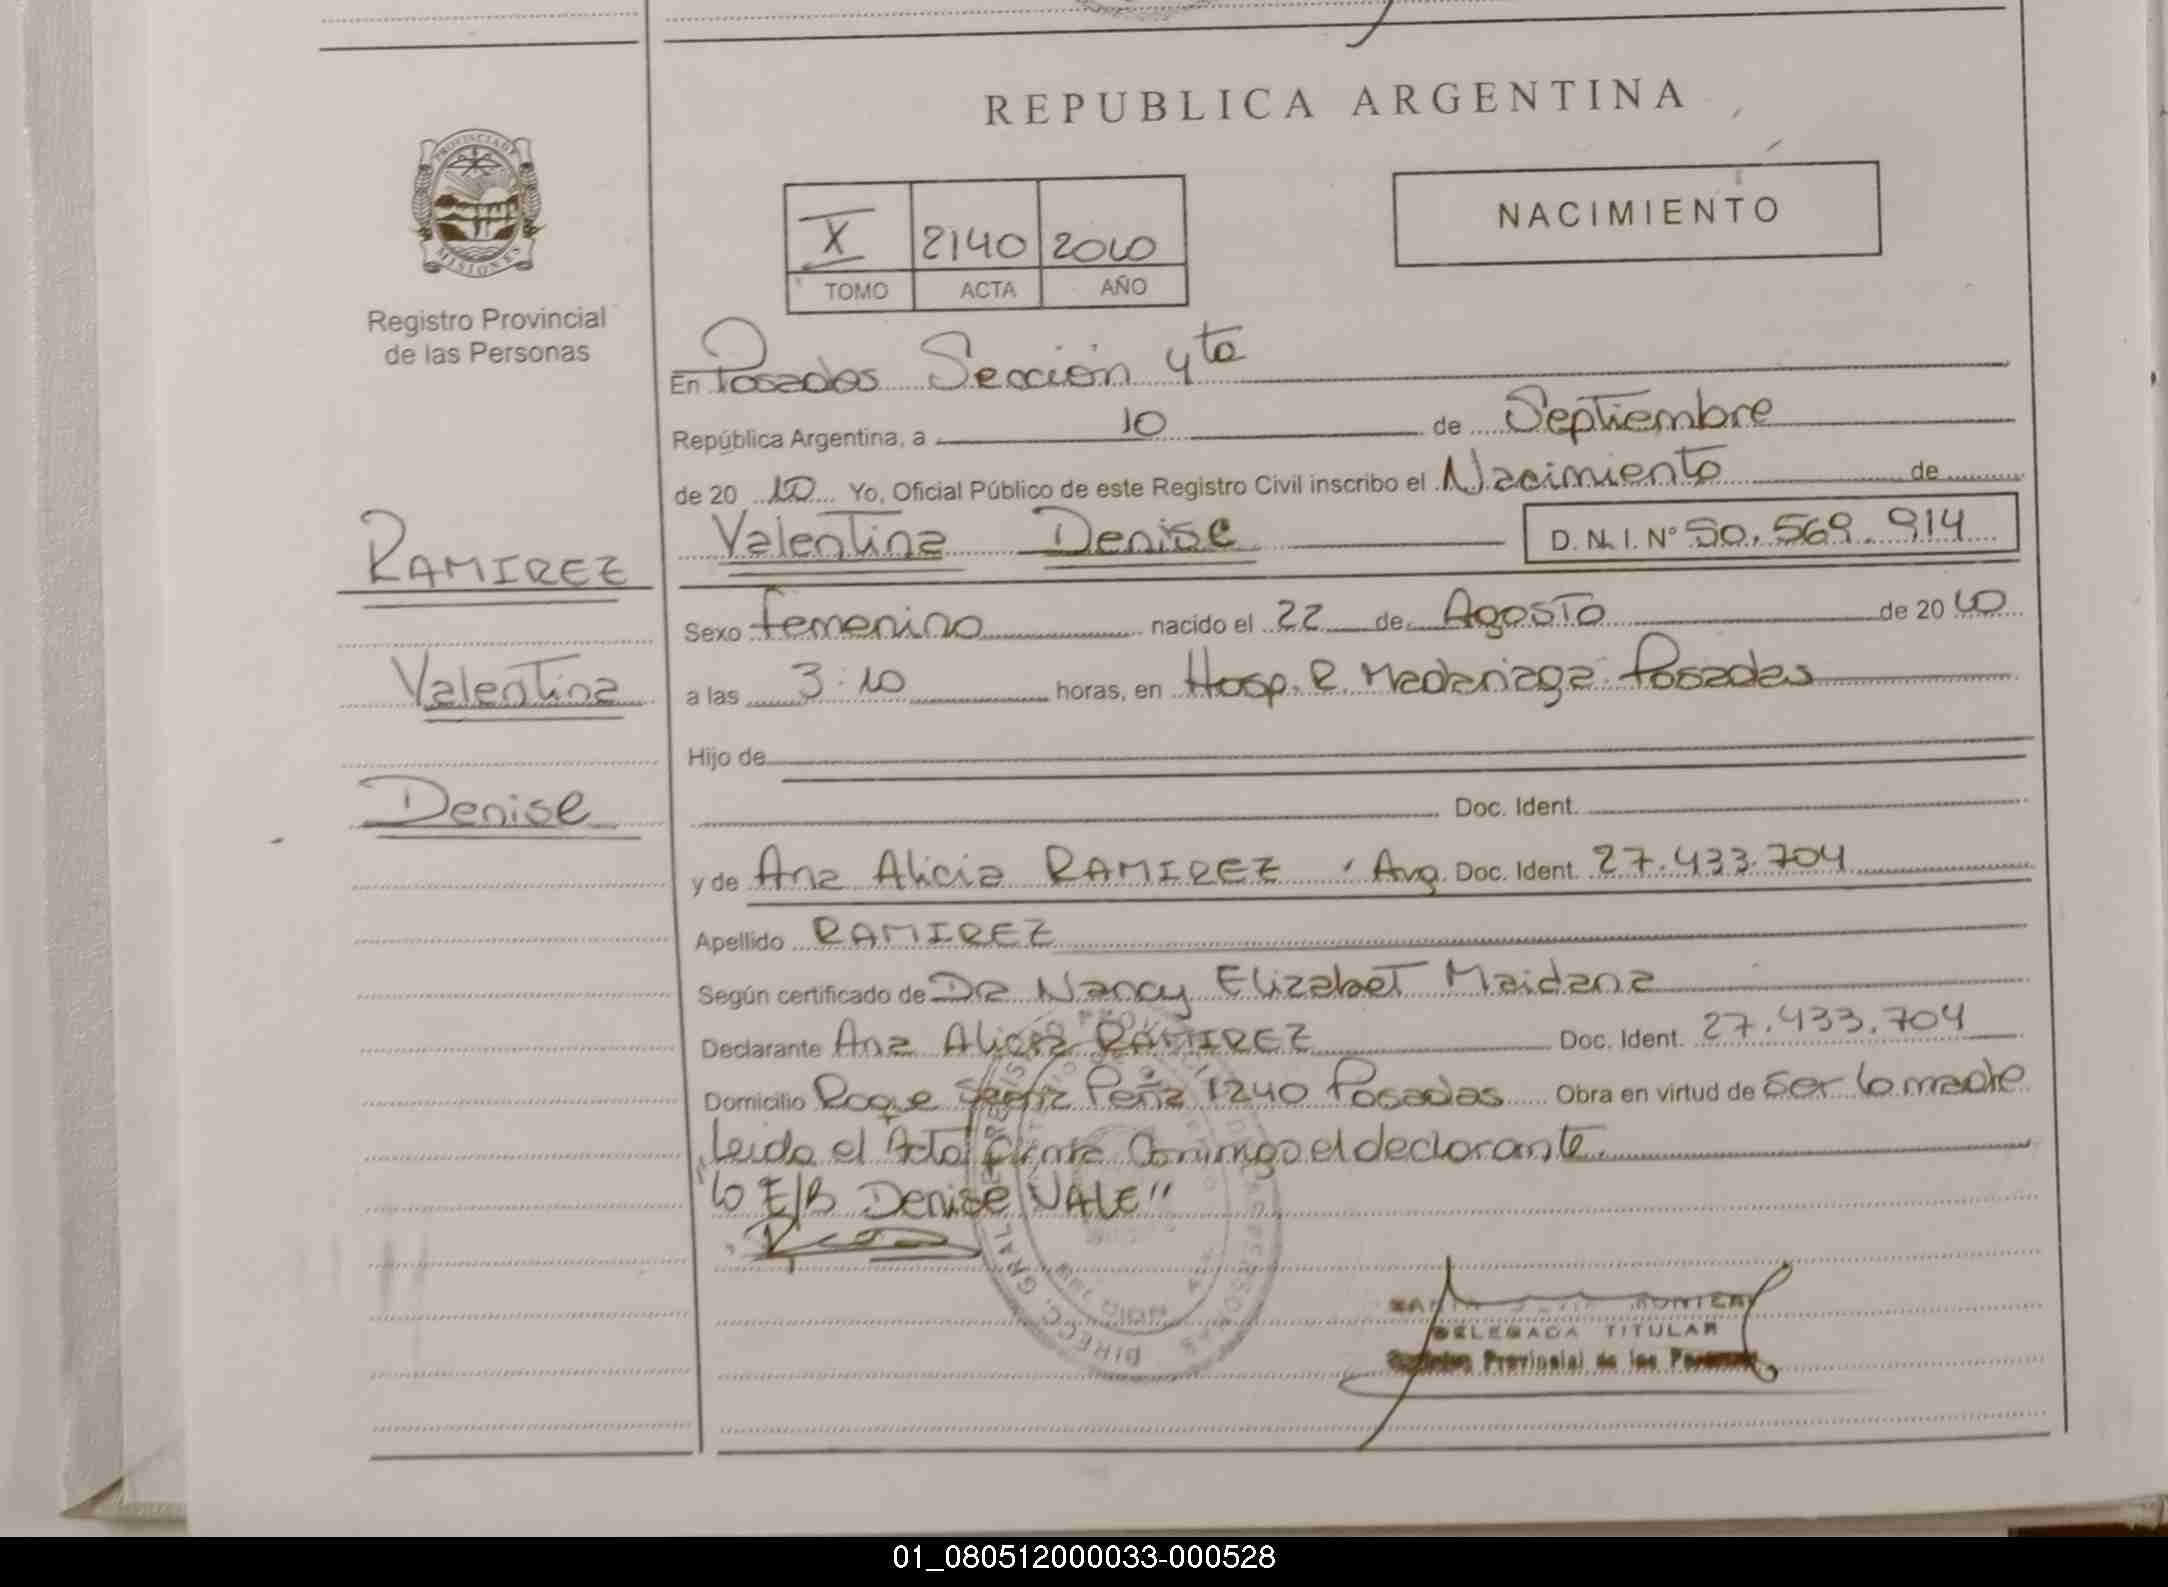 REPUBLICA ARGENTINA
PROVINCIA DE
MISIONES
Registro Provincial
de las Personas
X 2140 2010
TOMO ACTA AÑO
NACIMIENTO
En Posadas Sección 4ta
República Argentina, a 10 de Septiembre
de 20 10 Yo, Oficial Público de este Registro Civil inscribo el Nacimiento de
Valentina Denise D.N.I. Nº 50.569.914
RAMIREZ
Valentina
Denise
Sexo femenino nacido el 22 de Agosto de 20 10
a las 3:10 horas, en Hosp. R. Madariaga Posadas
Hijo de
Doc. Ident.
y de Ana Alicia RAMIREZ Arg. Doc. Ident. 27.433.704
Apellido RAMIREZ
Según certificado de Dra Nancy Elizabet Maidana
Declarante Ana Alicia RAMIREZ Doc. Ident. 27.433.704
Domicilio Roque Saenz Peña 1240 Posadas Obra en virtud de ser la madre
Leida el Acta firma Conmigo el declarante.
"lo E/B Denise VALE"
DIRECC. GRAL.
DELEGADA TITULAR
Provincial de las
01_080512000033-000528